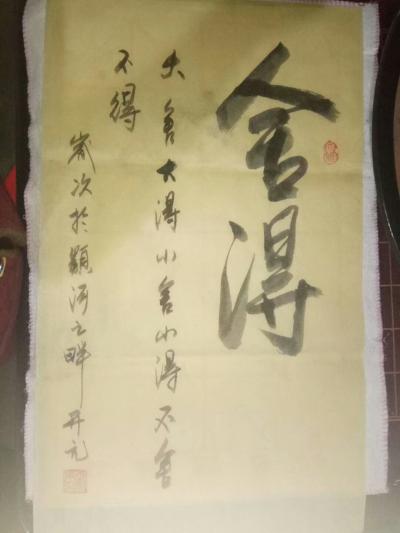 舍得
大舍大得小舍小得不舍
不得
岁次於颍河之畔 开元